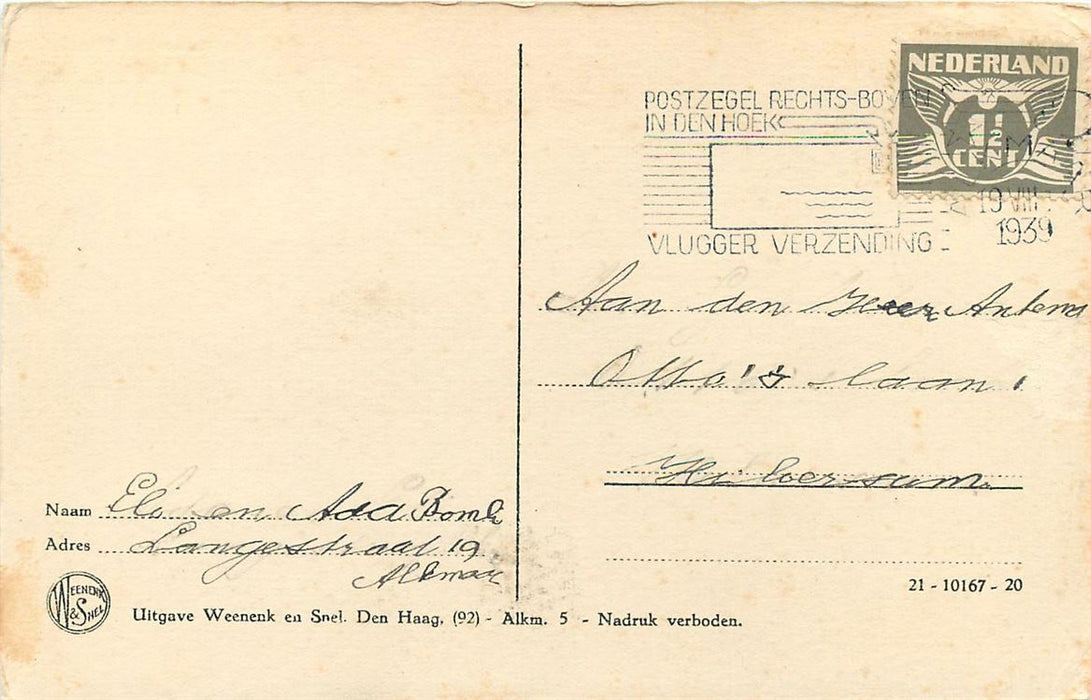 NEDERLAND
1½
CENT
POSTZEGEL RECHTS-BOVEN
IN DEN HOEK
VLUGGER VERZENDING
19 VIII
1939
Aan den Heer
Otto's laan 1
Hilversum.
Naam Eli en Ada
Adres Langestraat 19
Alkmaar
WEENENK & SNEL
Uitgave Weenenk en Snel. Den Haag, (92) - Alkm. 5 - Nadruk verboden.
21 - 10167 - 20